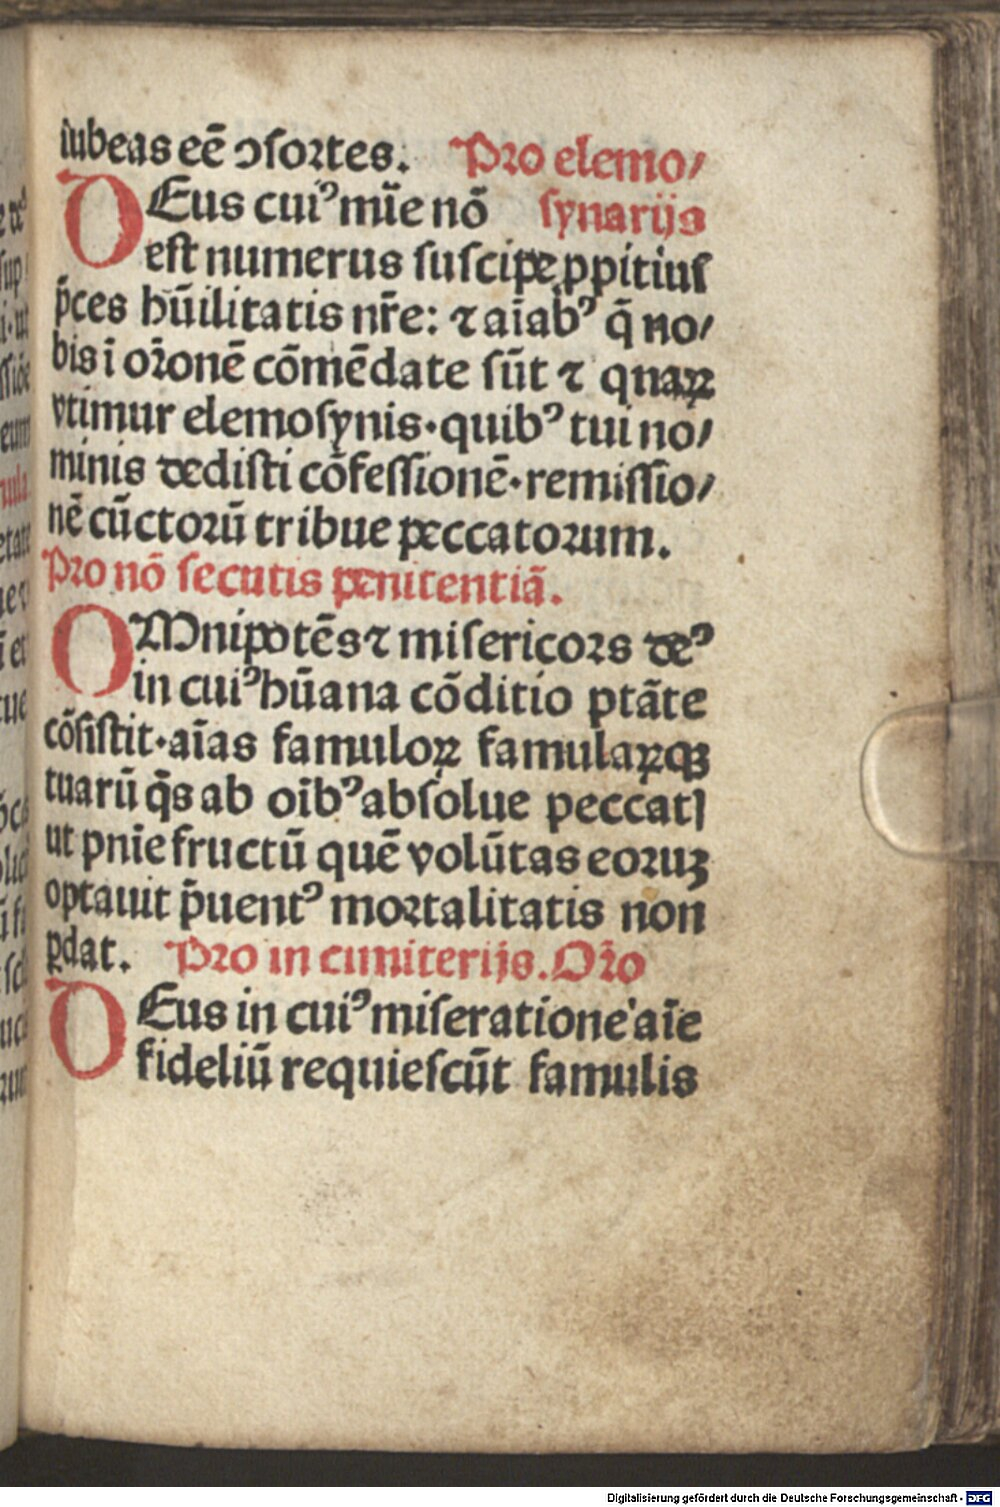 iubeas eē ↄſortes. Pro elemo/
DEus cuiꝰ mīe nō ſynarijs
eſt numerus ſuſcipe ꝓpitiuſ
p̄ces hūilitatis nr̄e: ⁊ aīabꝰ q̄ no/
bis ī oꝛonē cōmēdate ſūt ⁊ qnaꝝ
vtimur elemoſynis·quibꝰ tui no/
minis dediſti cōfeſſionē·remiſſio/
nē cūctoꝛū tribue peccatoꝛum.
Pro nō ſecutis penitentiā.
OMnipotēs ⁊ miſericoꝛs deꝰ
in cuiꝰ hūana cōditio ptāte
cōſiſtit·aīas famuloꝝ famulaꝝqꝫ
tuarū q̄s ab oībꝰ abſolue peccatꝭ
ut pnīe fructū quē volūtas eoꝛuꝫ
optauit p̄uentꝰ moꝛtalitatis non
ꝑdat. Pro in cimiterijs. Oꝛ̄o
DEus in cuiꝰ miſeratione aīe
fideliū requieſcūt famulis
Digitalisierung gefördert durch die Deutsche Forschungsgemeinschaft - DFG